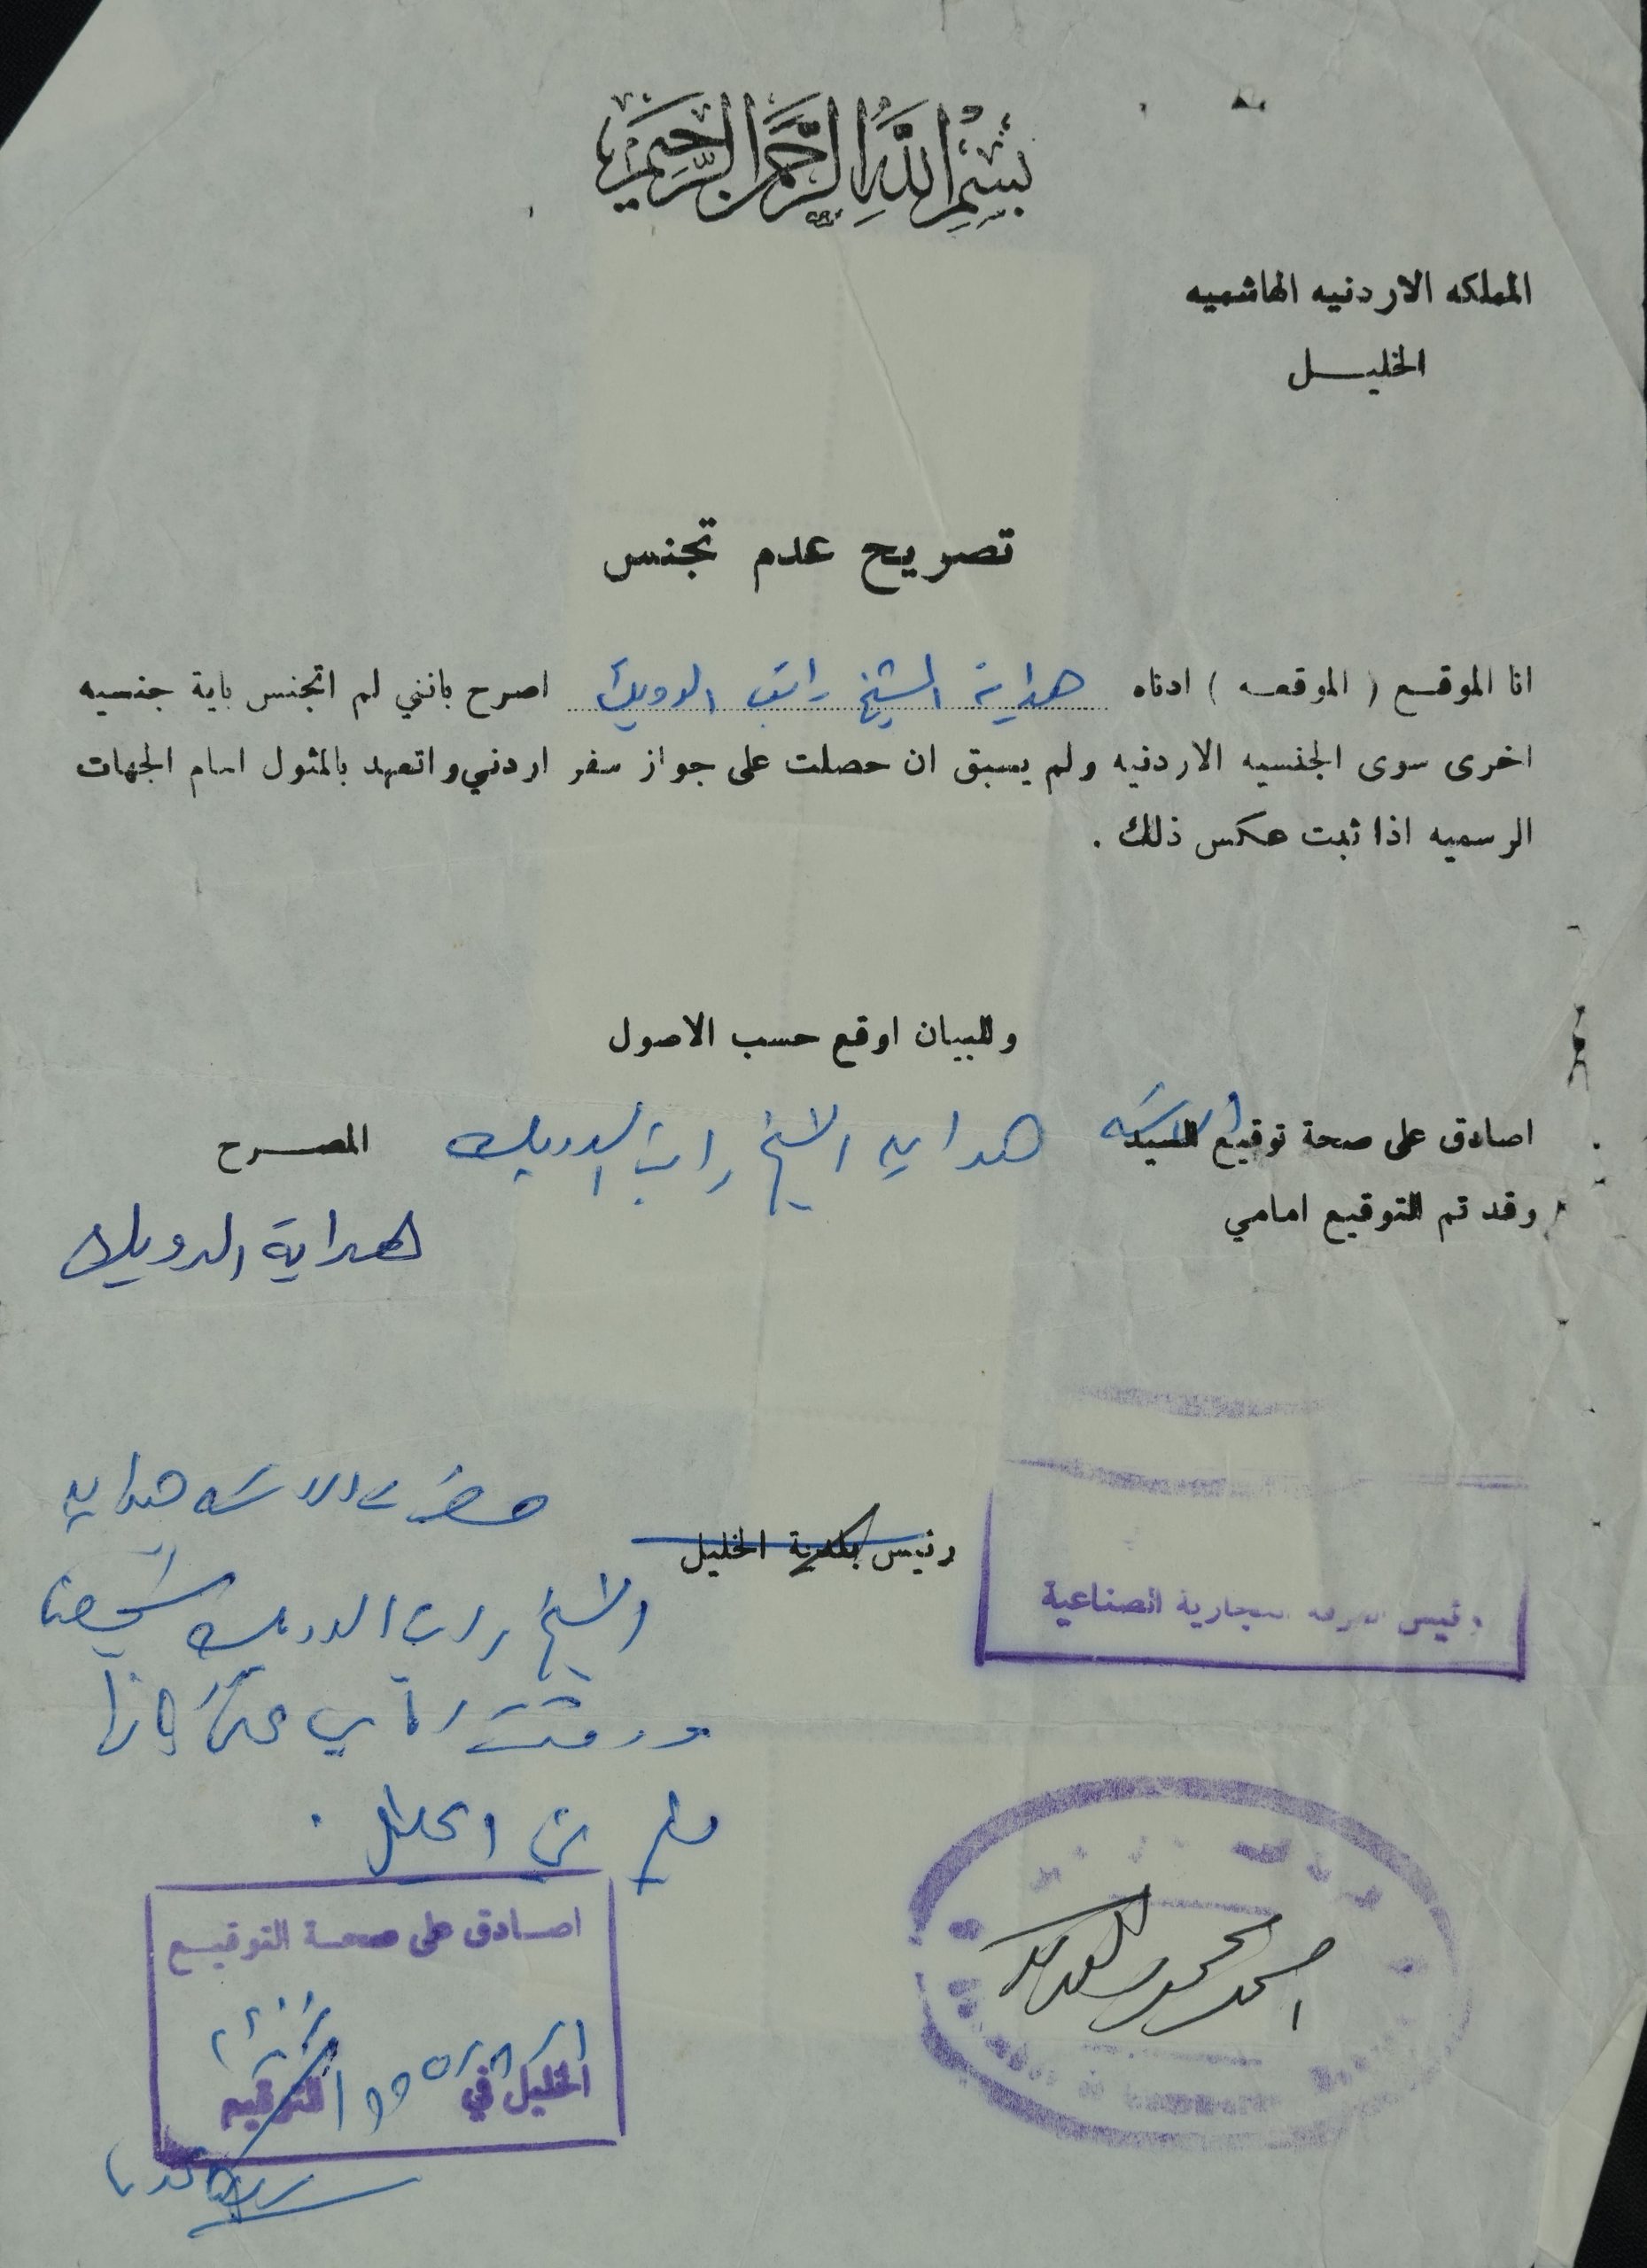 بسم الله الرحمن الرحيم
المملكه الاردنيه الهاشميه
الخليـــل
تصريح عدم تجنس
انا الموقـع ( الموقعـه ) ادناه هداية الشيخ راتب الدويك اصرح بانني لم اتجنس باية جنسيه
اخرى سوى الجنسيه الاردنيه ولم يسبق ان حصلت على جواز سفر اردني واتعهد بالمثول امام الجهات
الرسميه اذا ثبت عكس ذلك .
وللبيان اوقع حسب الاصول
اصادق على صحة توقيع السيد الانسه هدايه الشيخ راتب الدويك المصـــرح
وقد تم التوقيع امامي
هداية الدويك
حضرت الانسه هدايه
رئيس بلدية الخليل
الشيخ راتب الدويك
رئيس الغرفة التجارية الصناعية
اصـادق على صحـة التوقيـع
الخليل في
التوقيع